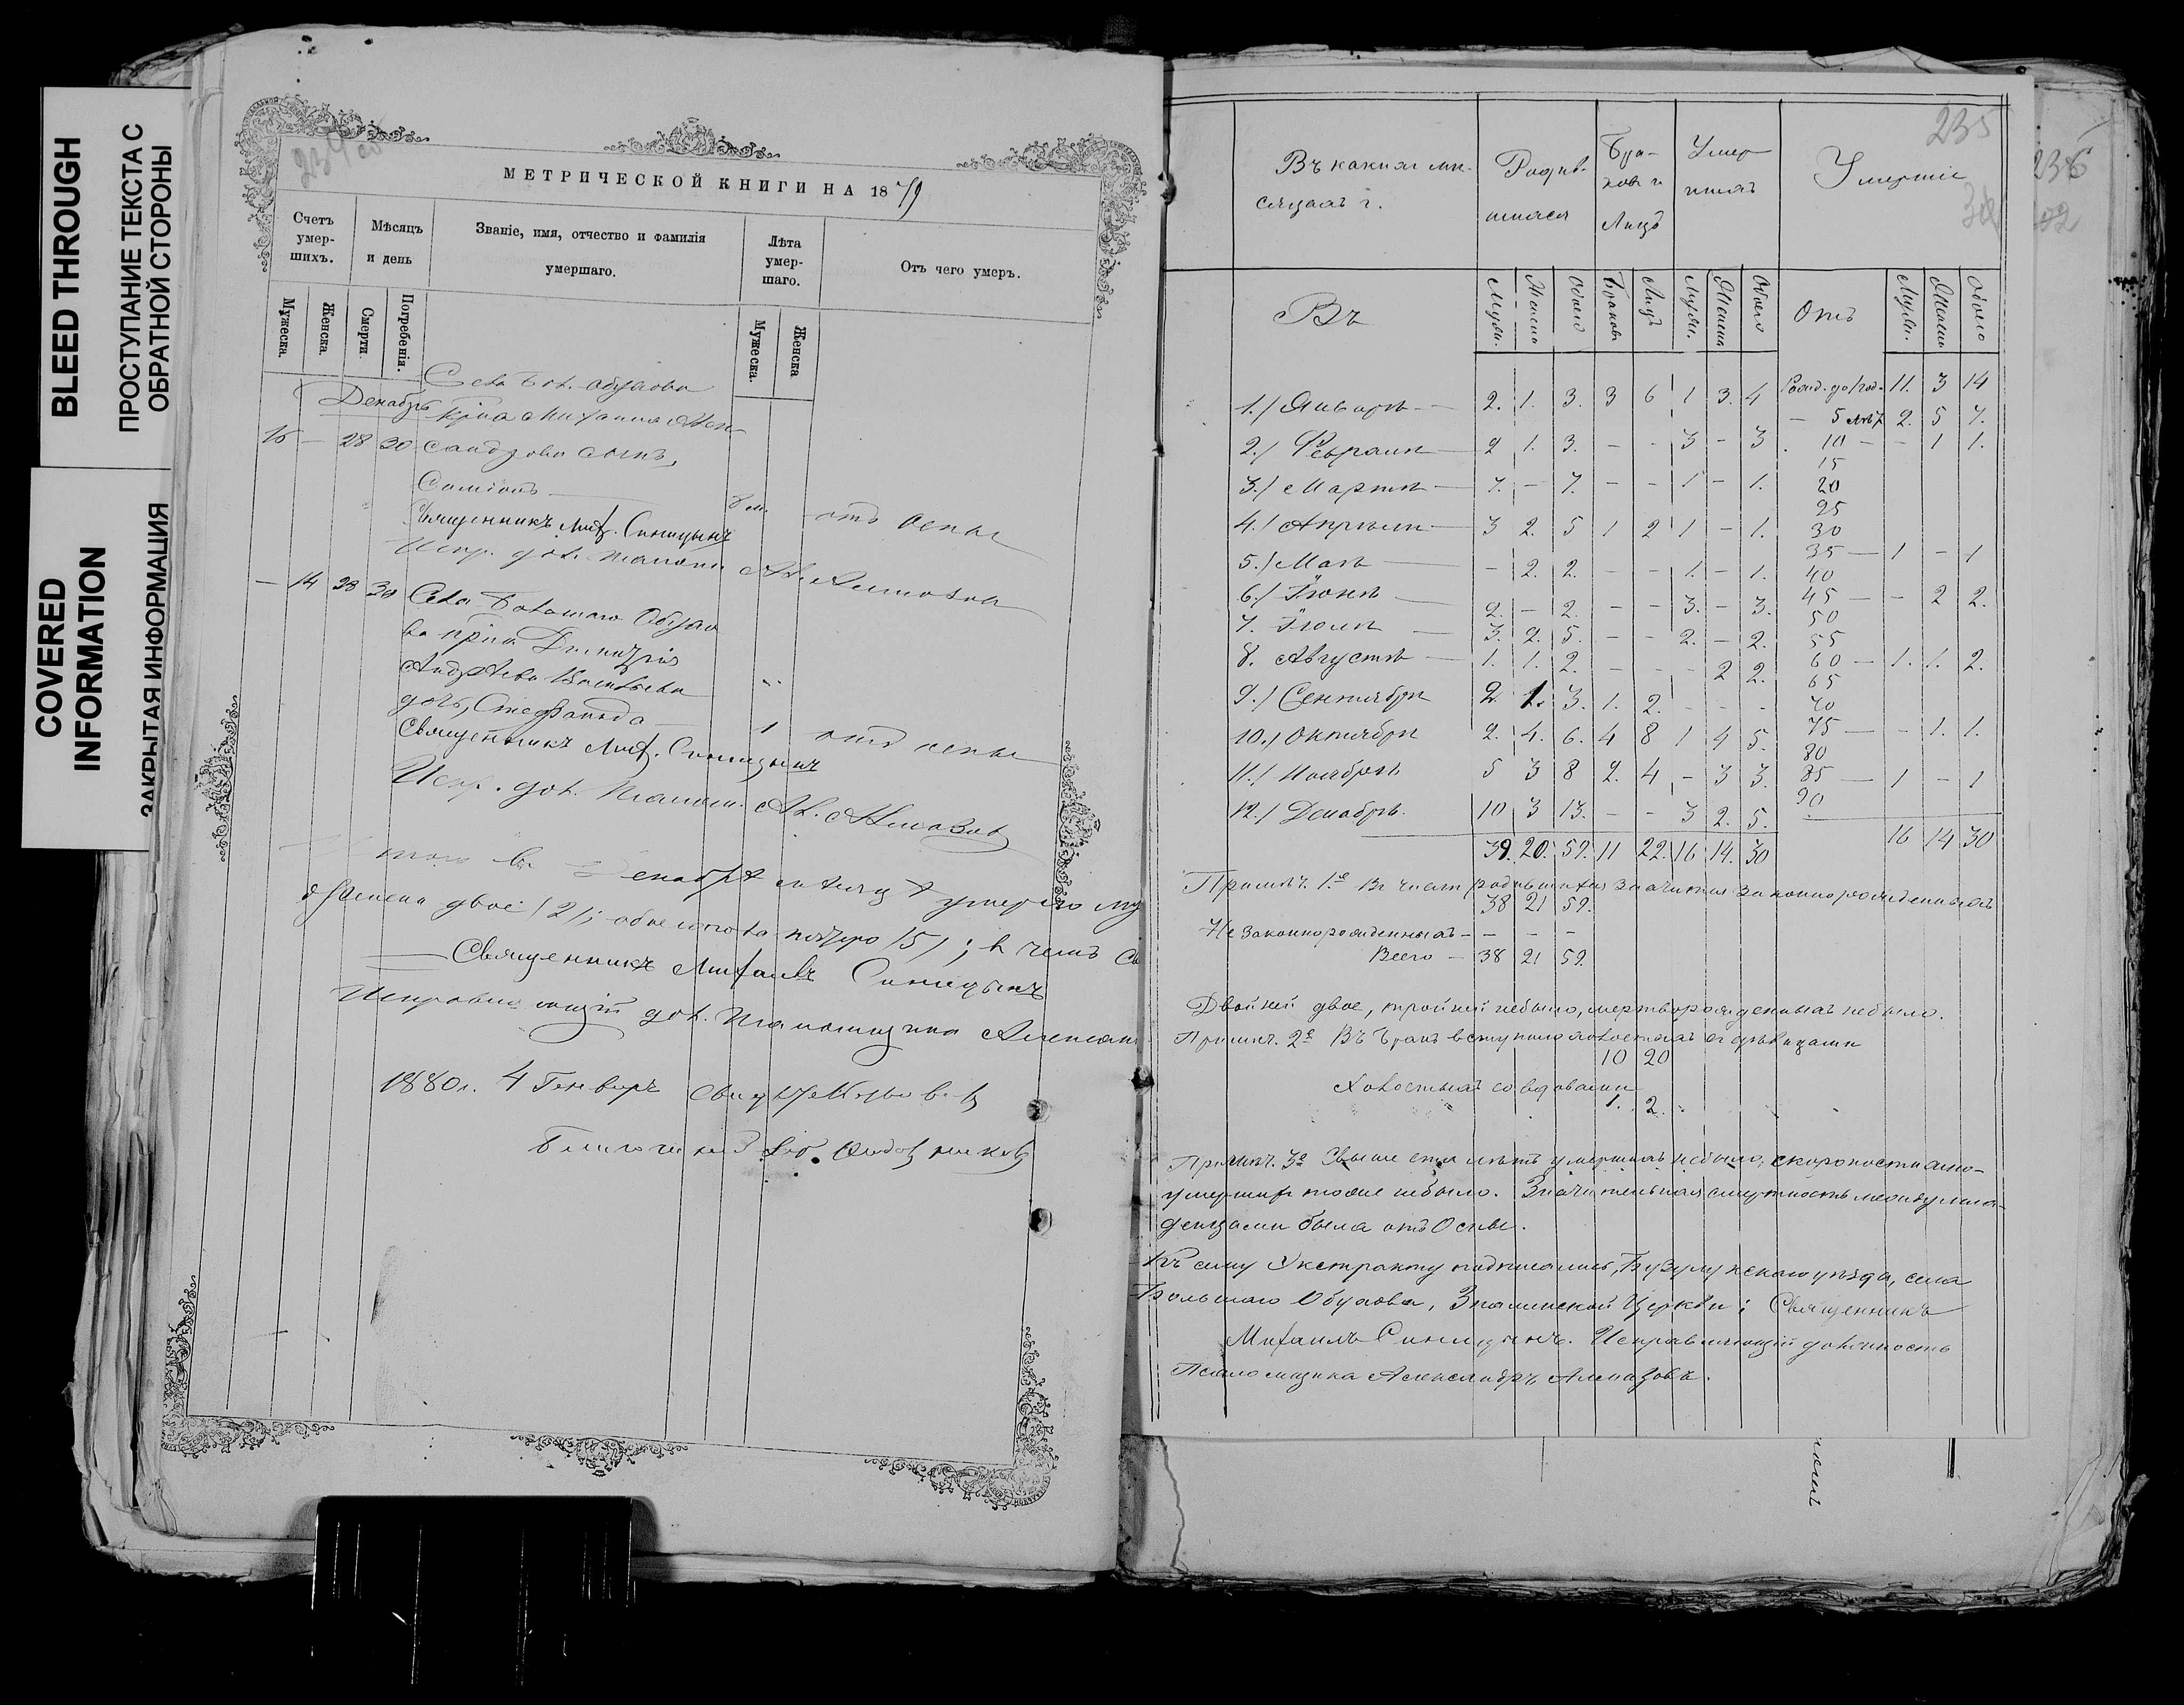 BLEED THROUGH
ПРОСТУПАНИЕ ТЕКСТА С
ОБРАТНОЙ СТОРОНЫ
COVERED
INFORMATION
ЗАКРЫТАЯ ИНФОРМАЦИЯ
234 об
МЕТРИЧЕСКОЙ КНИГИ НА 1879
Счетъ умер-шихъ. Мѣсяцъ и день Званіе, имя, отчество и фамилія умершаго. Лѣта умер-шаго. Отъ чего умеръ.
Мужеска. Женска. Смерти. Погребенія. Мужеска. Женска
Села Бол. Обухова
Декабрь кр-на Михаила Алек-
16 — 28 30 сандрова сынъ,
Симеонъ — 8 м. отъ оспы
Священникъ Мих. Синицынъ
Испр. дол. псалом. Ал. Алмазовъ
— 14 28 30 Села Большаго Обухо
ва кр-на Димитрія
Андреева Васильева
дочь, Стефанида — 1 отъ оспы
Священникъ Мих. Синицынъ
Испр. дол. псалом. Ал. Алмазовъ
Декабрѣ мѣсяцѣ умерло му
женска двое /2/; обоего пола пятеро /5/; в чемъ Св
Священникъ Михаилъ Синицынъ
Исправляющій дол. Псаломщика Александ
1880 г. 4 Генваря свидѣтельствовалъ
Благочинный
235
236
Въ какихъ мѣ-сяцахъ г. Родив-шихся Бра-ковъ и Лицъ Умер шихъ Умершіе
Въ Мужск. Женск Обоего Браковъ Лицъ Мужск. Женск Обоего Отъ Мужск. Женск Обоего
1./ Январѣ — 2. 1. 3. 3 6 1 3. 4 Рожд. до 1 год. 11. 3 14
— 5 лѣтъ 2. 5 7.
2./ Февралѣ — 2 1. 3. — — 3 — 3 10 — — 1 1.
15
3./ Мартѣ — 7. — 7. — — 1 — 1. 20
25
4./ Апрѣлѣ — 3 2. 5 1 2 1 — 1. 30
35 — 1 — 1
5./ Маѣ — — 2. 2. — — 1. — 1. 40
6./ Іюнѣ — 2. — 2. — — 3. — 3. 45 — — 2 2.
50
7. Іюлѣ — 3. 2. 5. — — 2. — 2. 55
8. Августѣ — 1. 1. 2. — — — 2 2. 60 — 1. 1. 2.
65
9./ Сентябрѣ 2. 1. 3. 1. 2. — — — 70
10./ Октябрѣ 2. 4. 6. 4 8 1 4 5. 75 — — 1. 1.
80
11./ Ноябрѣ 5 3 8 2. 4 — 3 3. 85 — 1 — 1
90
12./ Декабрѣ. 10 3 13. — — 3 2. 5.
39. 20. 59. 11 22. 16 14. 30 16 14 30
Примѣч. 1.е Въ числѣ родившихся значится законнорожденныхъ
38 21 59.
Незаконнорожденныхъ — — — —
Всего — 38 21 59.
Двойней двое, тройней небыло, мертворожденныхъ небыло.
Примѣч. 2е Въ бракъ вступило холостыхъ съ дѣвицами
10 20
Холостыхъ со вдовами
1. 2.
Примѣч. 3е Свыше ста лѣтъ умершихъ небыло, скоропостижно-
умерших тоже небыло. Значительная смертность между мла-
денцами была отъ Оспы.
Къ сему Экстракту подписались, Бузулукскаго уѣзда, села
Большаго Обухова, Знаменской Церкви: Священникъ
Михаилъ Синицынъ. Исправляющій должность
Псаломщика Александръ Алмазовъ.